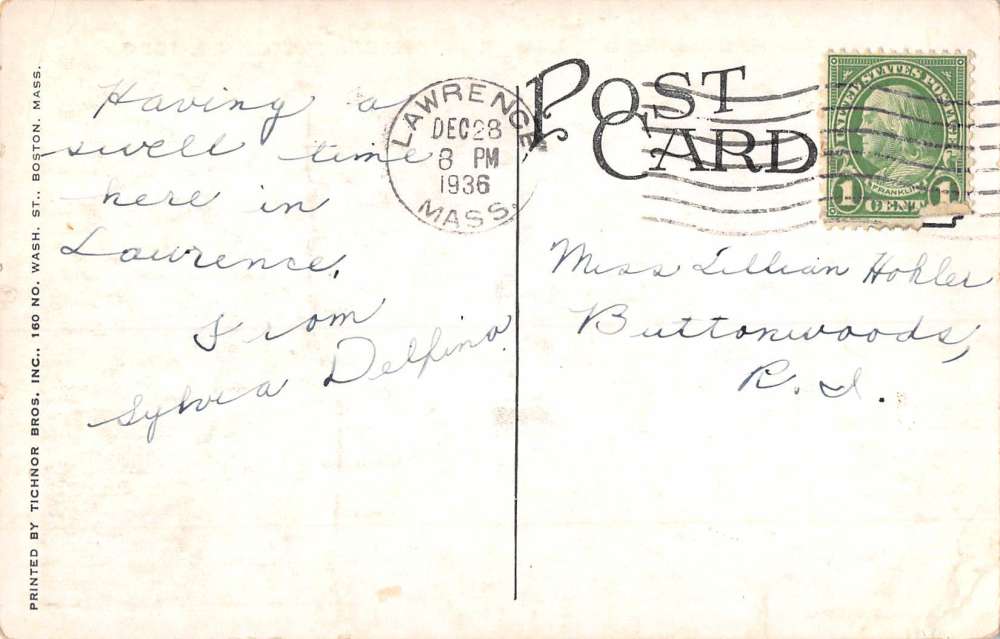 PRINTED BY TICHNOR BROS. INC., 160 NO. WASH. ST., BOSTON, MASS.
Having a
swell time
here in
Lawrence.
From
Sylvia Delfino.
LAWRENCE
DEC 28
8 PM
1936
MASS.
POST
CARD
UNITED STATES POSTAGE
FRANKLIN
1 CENT 1
Miss Lillian Hohler
Buttonwoods,
R. I.